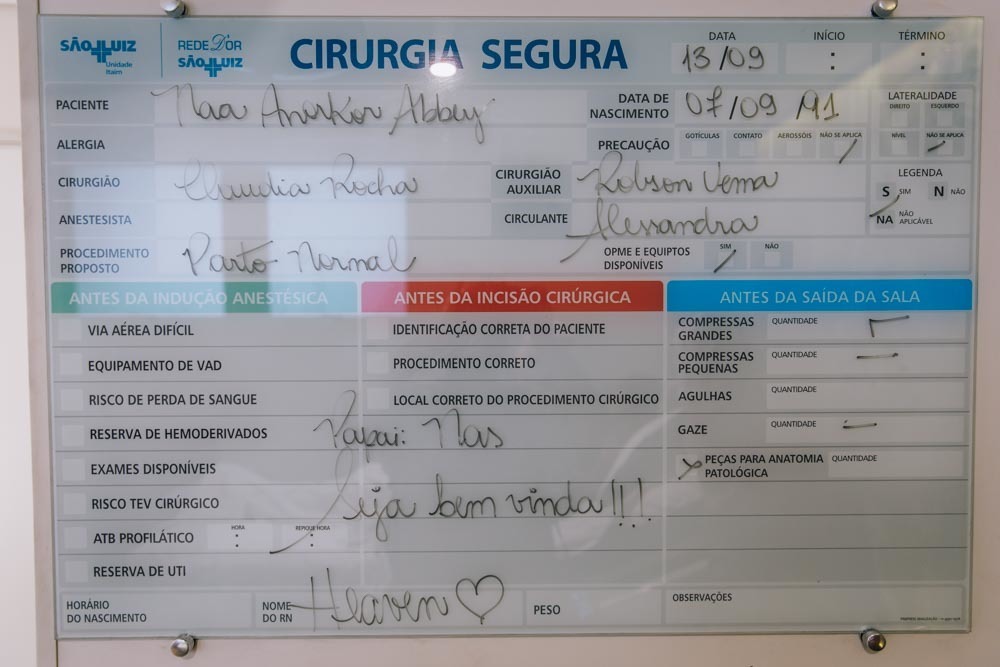 SÃO LUIZ
Unidade
Itaim
REDE D'OR
SÃO LUIZ
CIRURGIA SEGURA
DATA
13/09
INÍCIO
:
TÉRMINO
:
PACIENTE Naa Anorkor Abbey
DATA DE
NASCIMENTO 07/09/91
LATERALIDADE
DIREITO ESQUERDO
NÍVEL NÃO SE APLICA
ALERGIA
PRECAUÇÃO GOTÍCULAS CONTATO AEROSSÓIS NÃO SE APLICA
CIRURGIÃO Claudia Rocha
CIRURGIÃO
AUXILIAR Robson Vema
LEGENDA
S SIM N NÃO
NA NÃO
APLICÁVEL
ANESTESISTA
CIRCULANTE Alessandra
PROCEDIMENTO
PROPOSTO Parto Normal
OPME E EQUIPTOS
DISPONÍVEIS SIM NÃO
ANTES DA INDUÇÃO ANESTÉSICA
VIA AÉREA DIFÍCIL
EQUIPAMENTO DE VAD
RISCO DE PERDA DE SANGUE
RESERVA DE HEMODERIVADOS
EXAMES DISPONÍVEIS
RISCO TEV CIRÚRGICO
ATB PROFILÁTICO HORA : REPIQUE HORA :
RESERVA DE UTI
ANTES DA INCISÃO CIRÚRGICA
IDENTIFICAÇÃO CORRETA DO PACIENTE
PROCEDIMENTO CORRETO
LOCAL CORRETO DO PROCEDIMENTO CIRÚRGICO
Papai: Nas
Seja bem vinda!!!
ANTES DA SAÍDA DA SALA
COMPRESSAS
GRANDES QUANTIDADE
COMPRESSAS
PEQUENAS QUANTIDADE
AGULHAS QUANTIDADE
GAZE QUANTIDADE
PEÇAS PARA ANATOMIA
PATOLÓGICA QUANTIDADE
HORÁRIO
DO NASCIMENTO
NOME
DO RN Heaven ♡
PESO
OBSERVAÇÕES